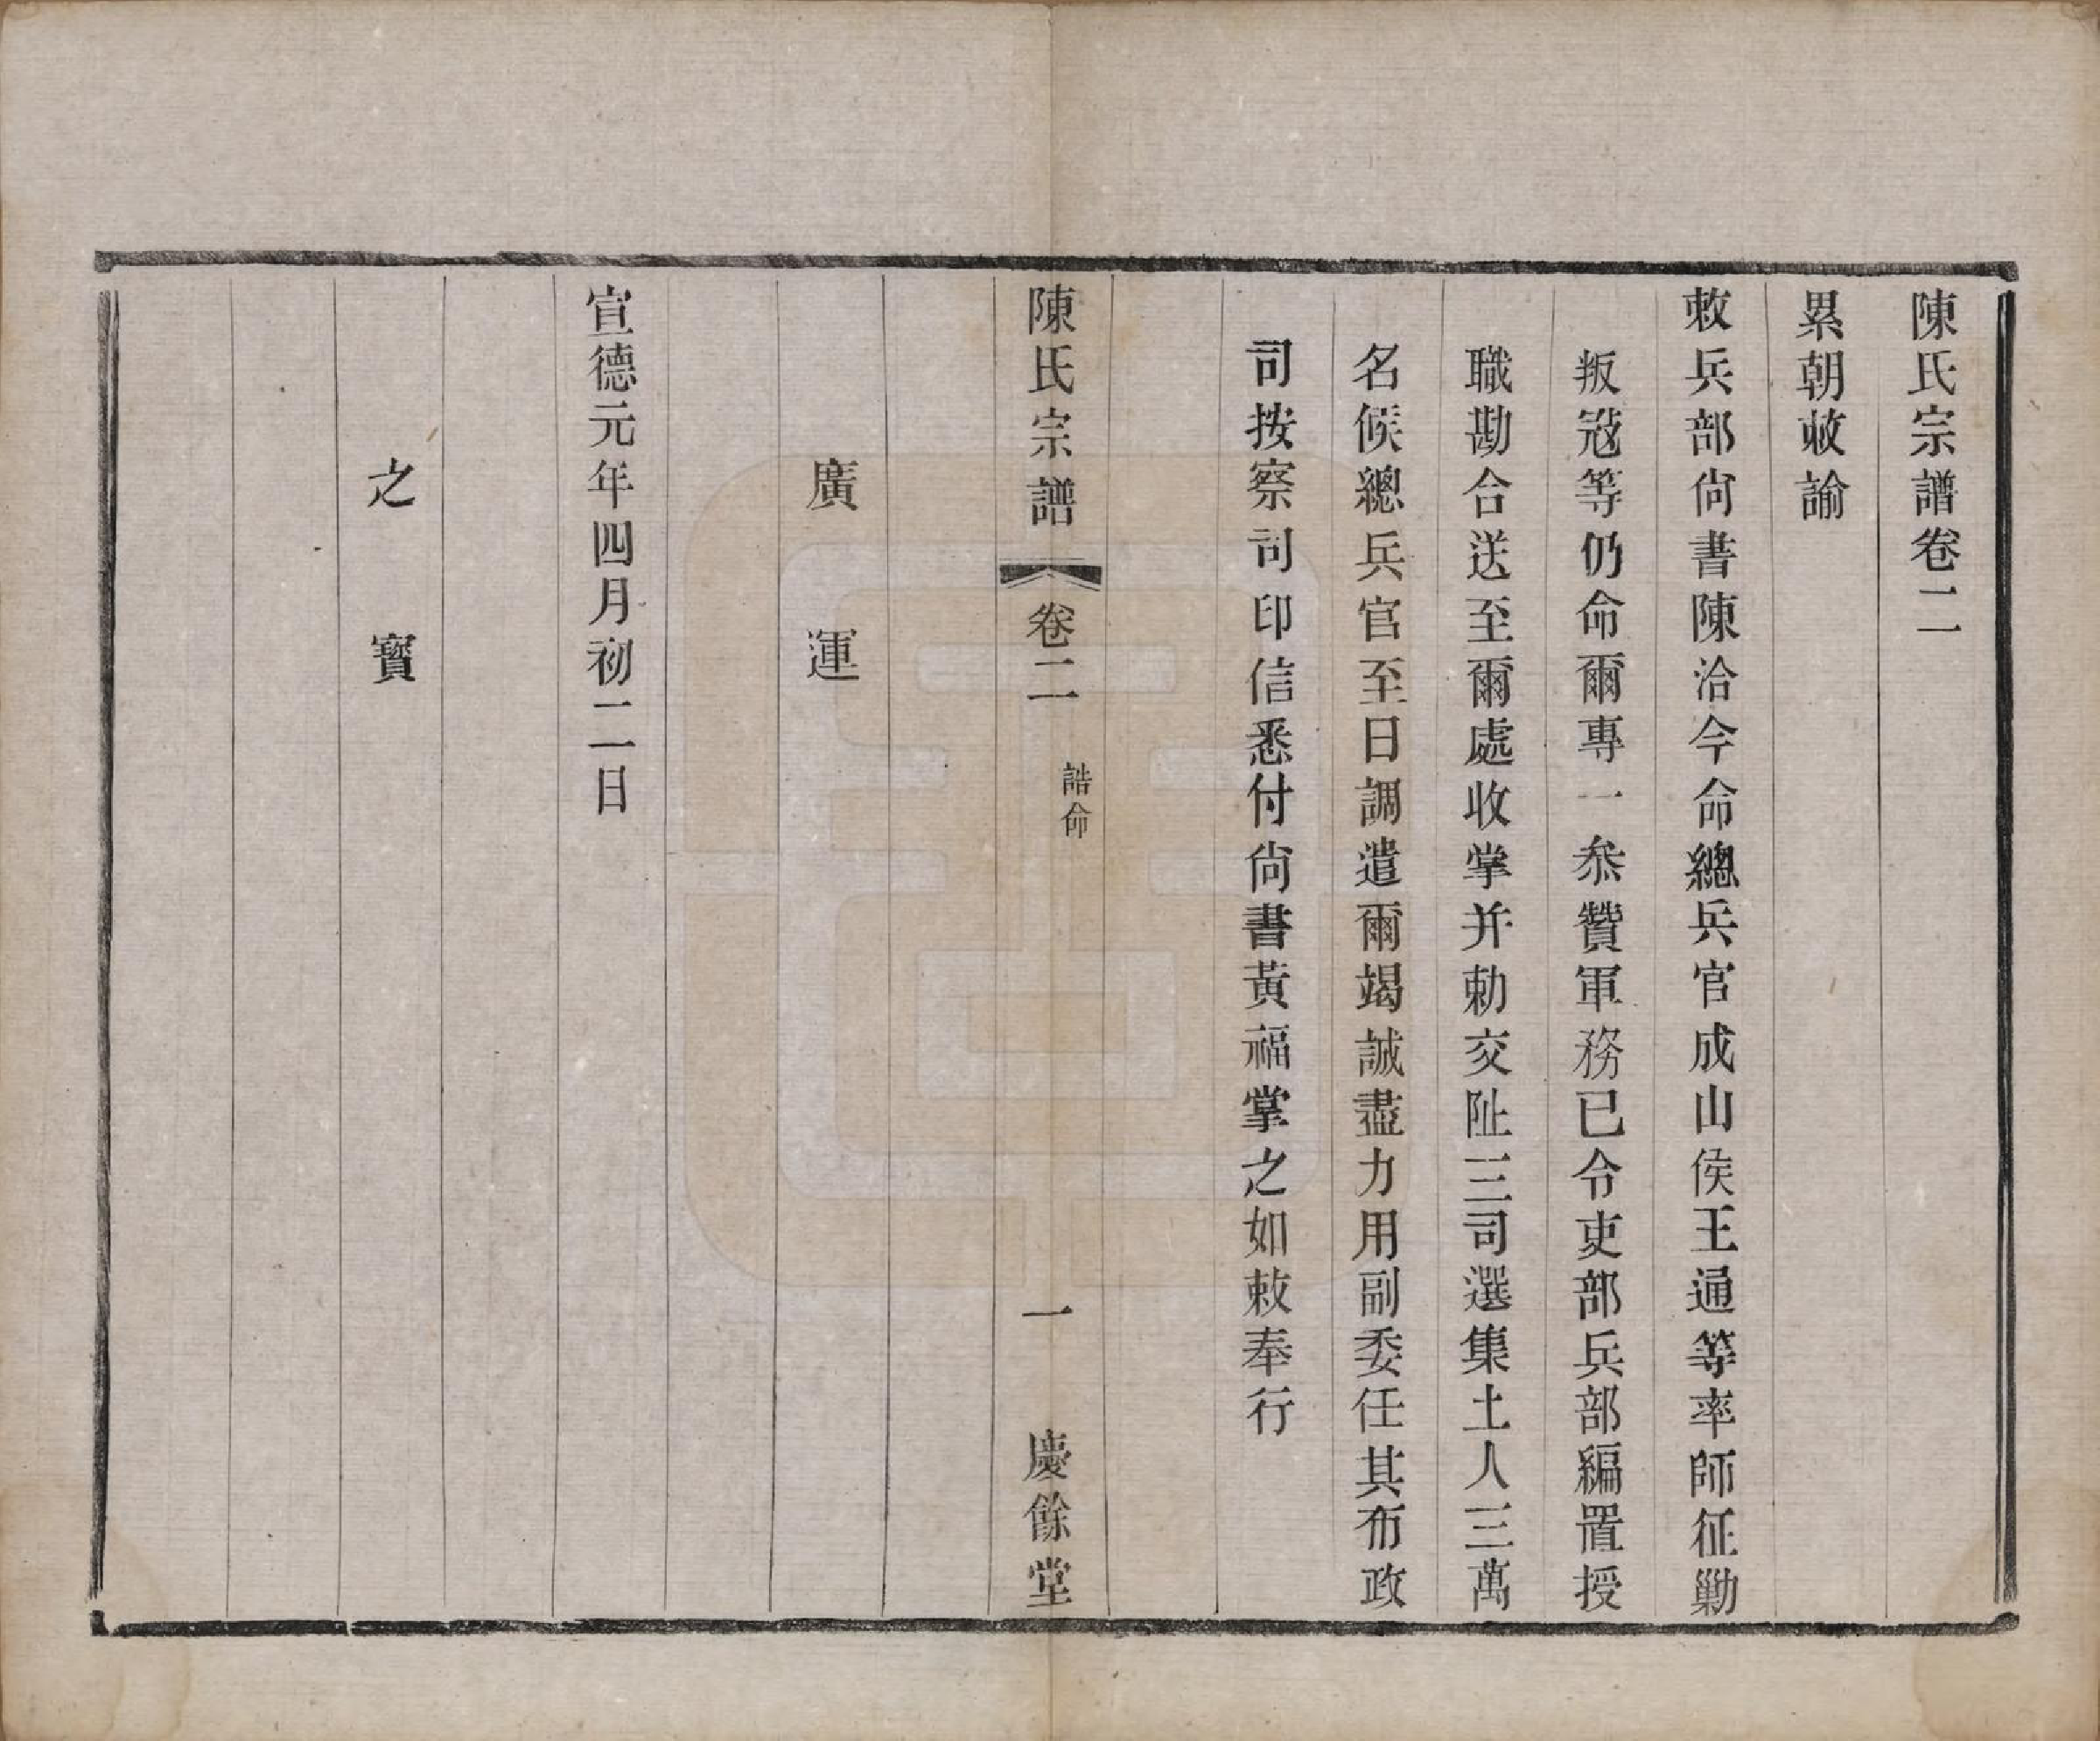 陳氏宗譜卷二
累朝敕諭
敕兵部尙書陳洽今命總兵官成山侯王通等率師征勦
叛寇等仍命爾專一叅贊軍務已令吏部兵部編置授
職勘合送至爾處收掌并勅交阯三司選集土人三萬
名候總兵官至日調遣爾竭誠盡力用副委任其布政
司按察司印信悉付尙書黃福掌之如敕奉行
陳氏宗譜 卷二 誥命 一 慶餘堂
廣運
宣德元年四月初二日
之寳